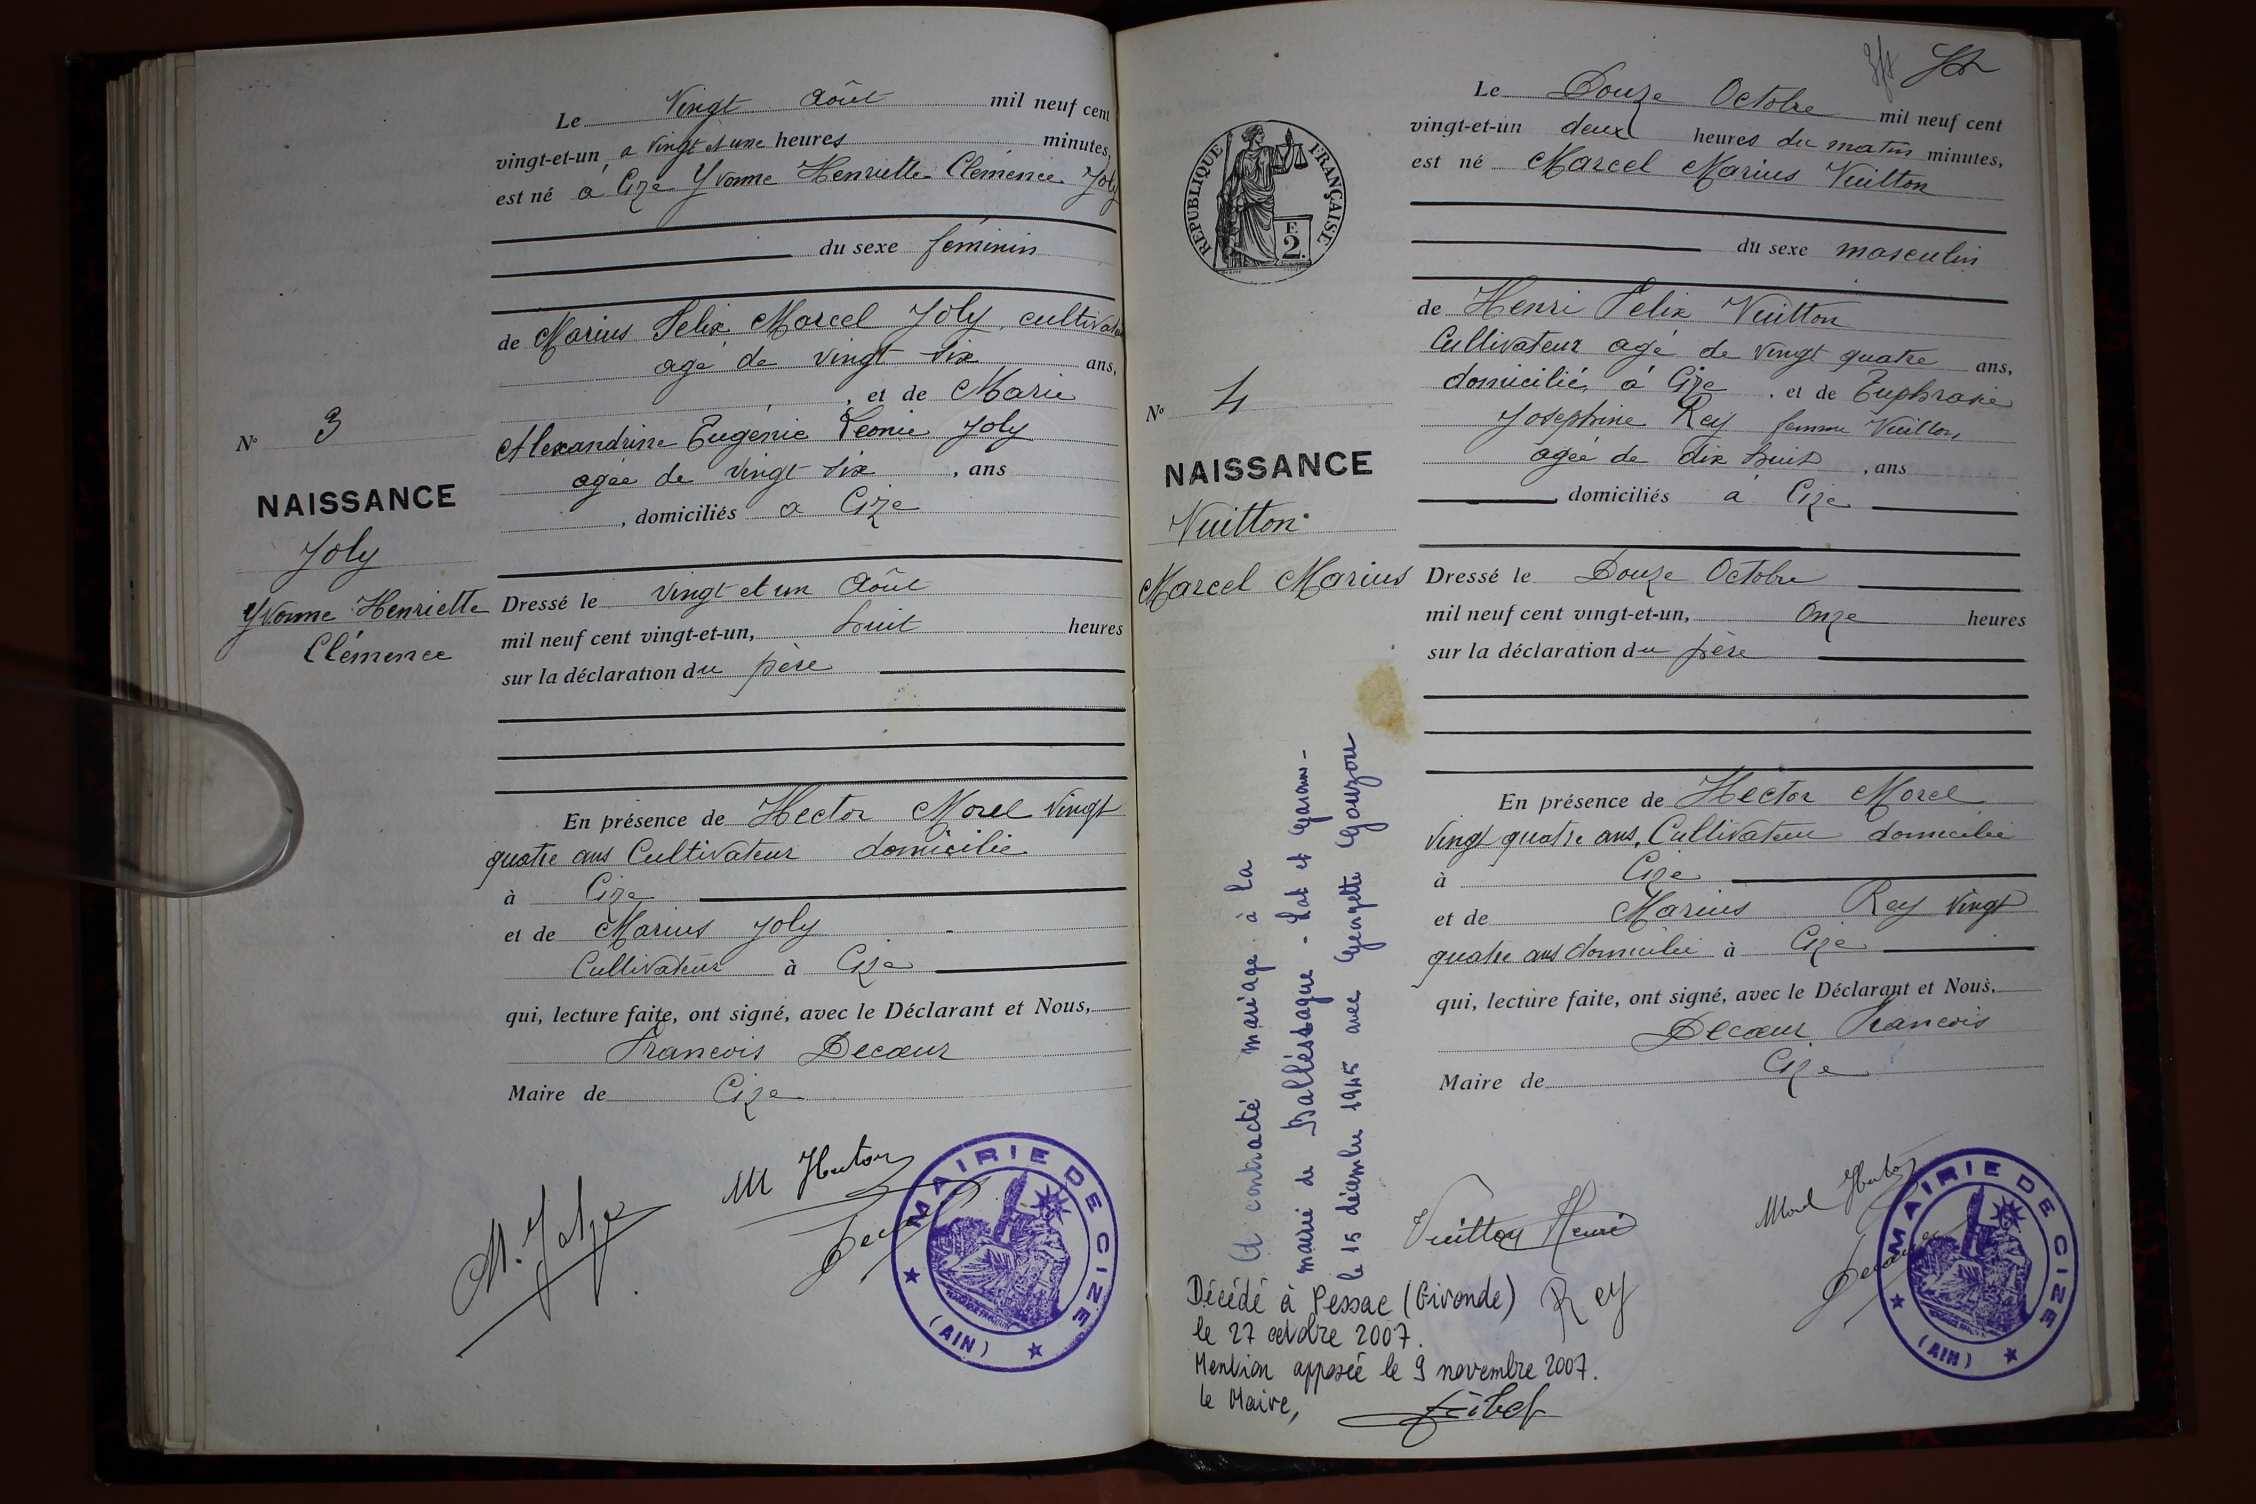 Le Vingt Août mil neuf cent
vingt-et-un, a vingt et une heures minutes,
est né à Cize Yvonne Henriette Clémence Joly
du sexe féminin
de Marius Felix Marcel Joly, cultivateur
agé de vingt six ans,
, et de Marie
Alexandrine Eugénie Léonie Joly
agée de vingt six , ans
, domiciliés a Cize
N° 3
NAISSANCE
Joly
Yvonne Henriette
Clémence
Dressé le vingt et un Août
mil neuf cent vingt-et-un, huit heures
sur la déclaration du père
En présence de Hector Morel vingt
quatre ans Cultivateur domicilié
à Cize
et de Marius Joly
Cultivateur à Cize
qui, lecture faite, ont signé, avec le Déclarant et Nous,
Francois Decœur
Maire de Cize
MAIRIE DE CIZE
(AIN)
Le Douze Octobre mil neuf cent
vingt-et-un deux heures du matin minutes,
est né Marcel Marius Vuitton
du sexe masculin
de Henri Felix Vuitton
Cultivateur agé de vingt quatre ans,
domicilié à Cize . et de Euphrasie
Josephine Rey femme Vuitton
agée de dix huit , ans
domiciliés a Cize
RÉPUBLIQUE FRANÇAISE
F.
2.
N° 4
NAISSANCE
Vuitton
Marcel Marius
Dressé le Douze Octobre
mil neuf cent vingt-et-un, Onze heures
sur la déclaration du père
En présence de Hector Morel
vingt quatre ans, Cultivateur domicilié
à Cize
et de Marius Rey vingt
quatre ans domicilié à Cize
qui, lecture faite, ont signé, avec le Déclarant et Nous,
Decœur Francois
Maire de Cize
A contracté mariage à la
mairie de - Lot et Garonne -
le 15 décembre 1945 avec Georgette Gouzou
Vuitton Henri
Rey
Morel
MAIRIE DE CIZE
(AIN)
Décédé à Pessac (Gironde)
le 27 octobre 2007.
Mention apposée le 9 novembre 2007.
le Maire,